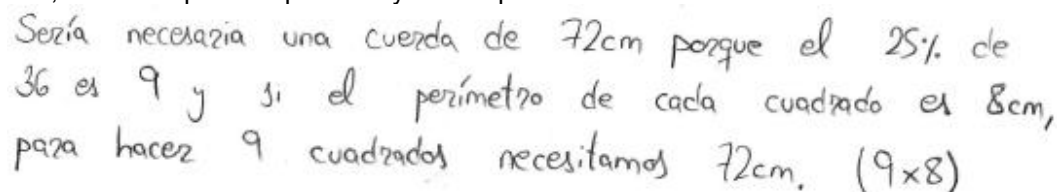 Sería necesaria una cuerda de 72cm porque el 25% de
36 es 9 y si el perímetro de cada cuadrado es 8cm,
para hacer 9 cuadrados necesitamos 72cm. (9x8)